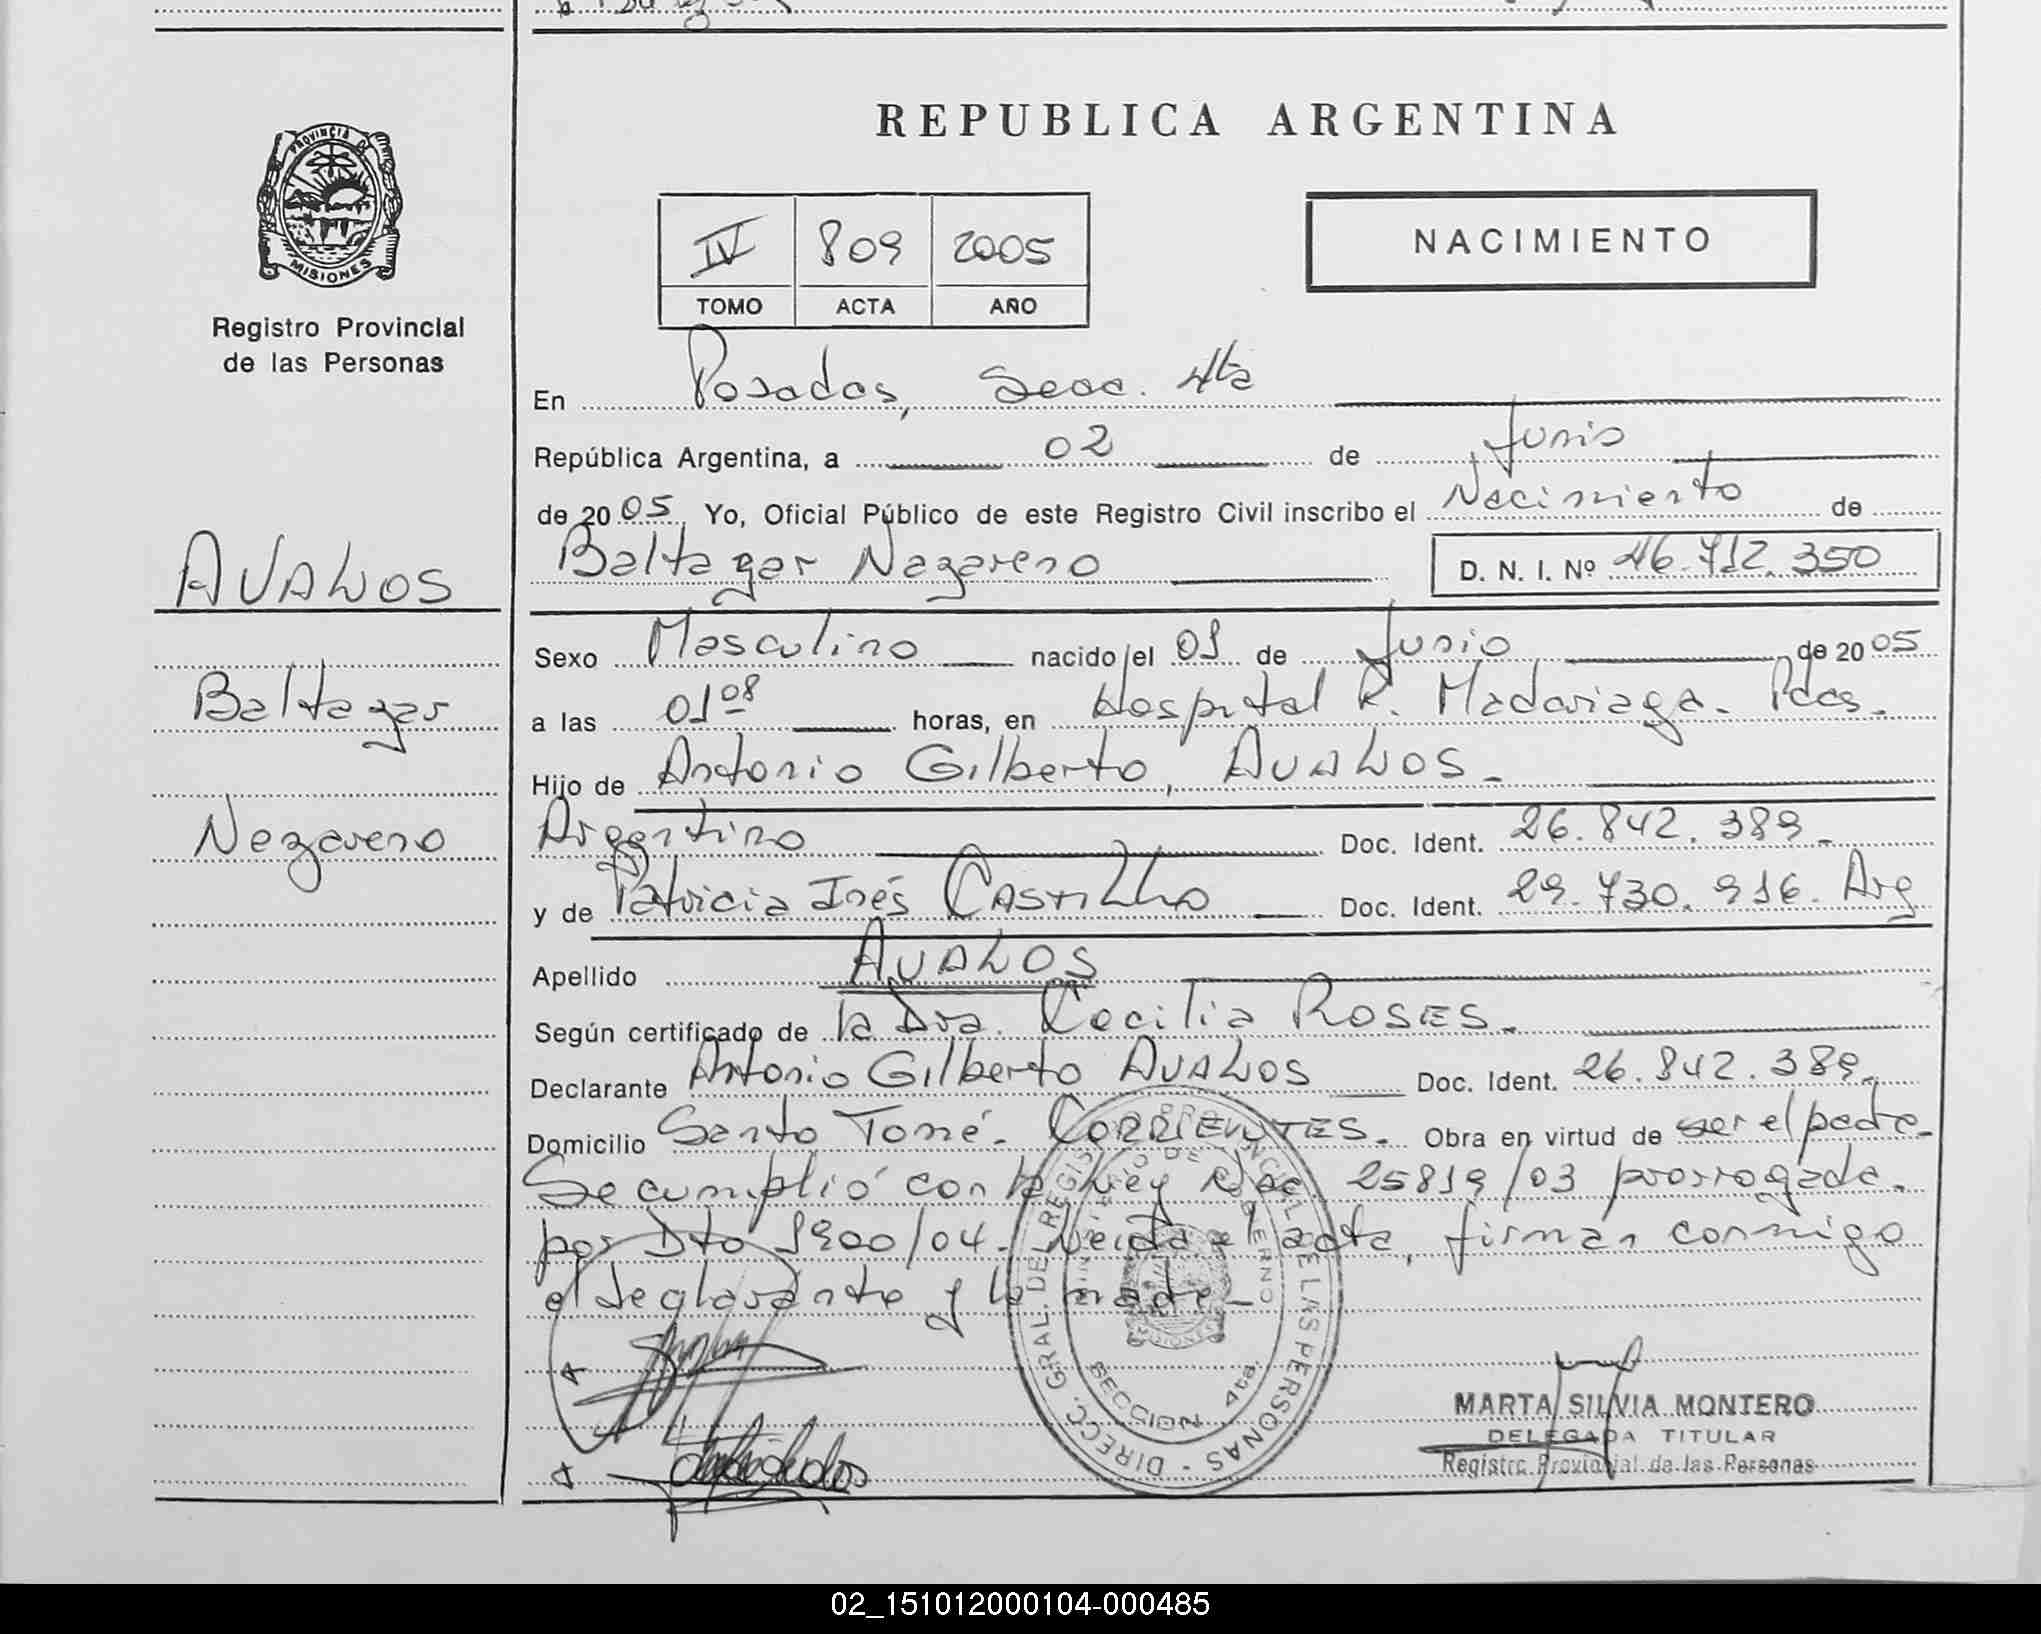 REPUBLICA ARGENTINA
PROVINCIA DE
MISIONES
Registro Provincial
de las Personas
IV 809 2005
TOMO ACTA AÑO
NACIMIENTO
En Posadas, Secc. 4ta
República Argentina, a 02 de Junio
de 2005. Yo, Oficial Público de este Registro Civil inscribo el Nacimiento de
Baltazar Nazareno D. N. I. Nº 46.712.350
AVALOS
Baltazar
Nazareno
Sexo Masculino nacido el 01 de Junio de 2005
a las 01 08 horas, en Hospital R. Madariaga. Pdas.
Hijo de Antonio Gilberto, AVALOS.
Argentino Doc. Ident. 26.842.389.
y de Patricia Inés CASTILLO Doc. Ident. 29.730.916. Arg
Apellido AVALOS
Según certificado de la Dra. Cecilia ROSES.
Declarante Antonio Gilberto AVALOS Doc. Ident. 26.842.389.
Domicilio Santo Tomé. CORRIENTES. Obra en virtud de ser el padre.
Se cumplió con la Ley Nac. 25819/03 prorrogada.
por Dto 1900/04. Leída el acta, firman conmigo
el declarante y la madre.
DIRECC. GRAL. DEL REGISTRO PROVINCIAL DE LAS PERSONAS -
MINISTERIO DE GOBIERNO
MISIONES
SECCION 4ta.
MARTA SILVIA MONTERO
DELEGADA TITULAR
Registro Provincial de las Personas
02_151012000104-000485